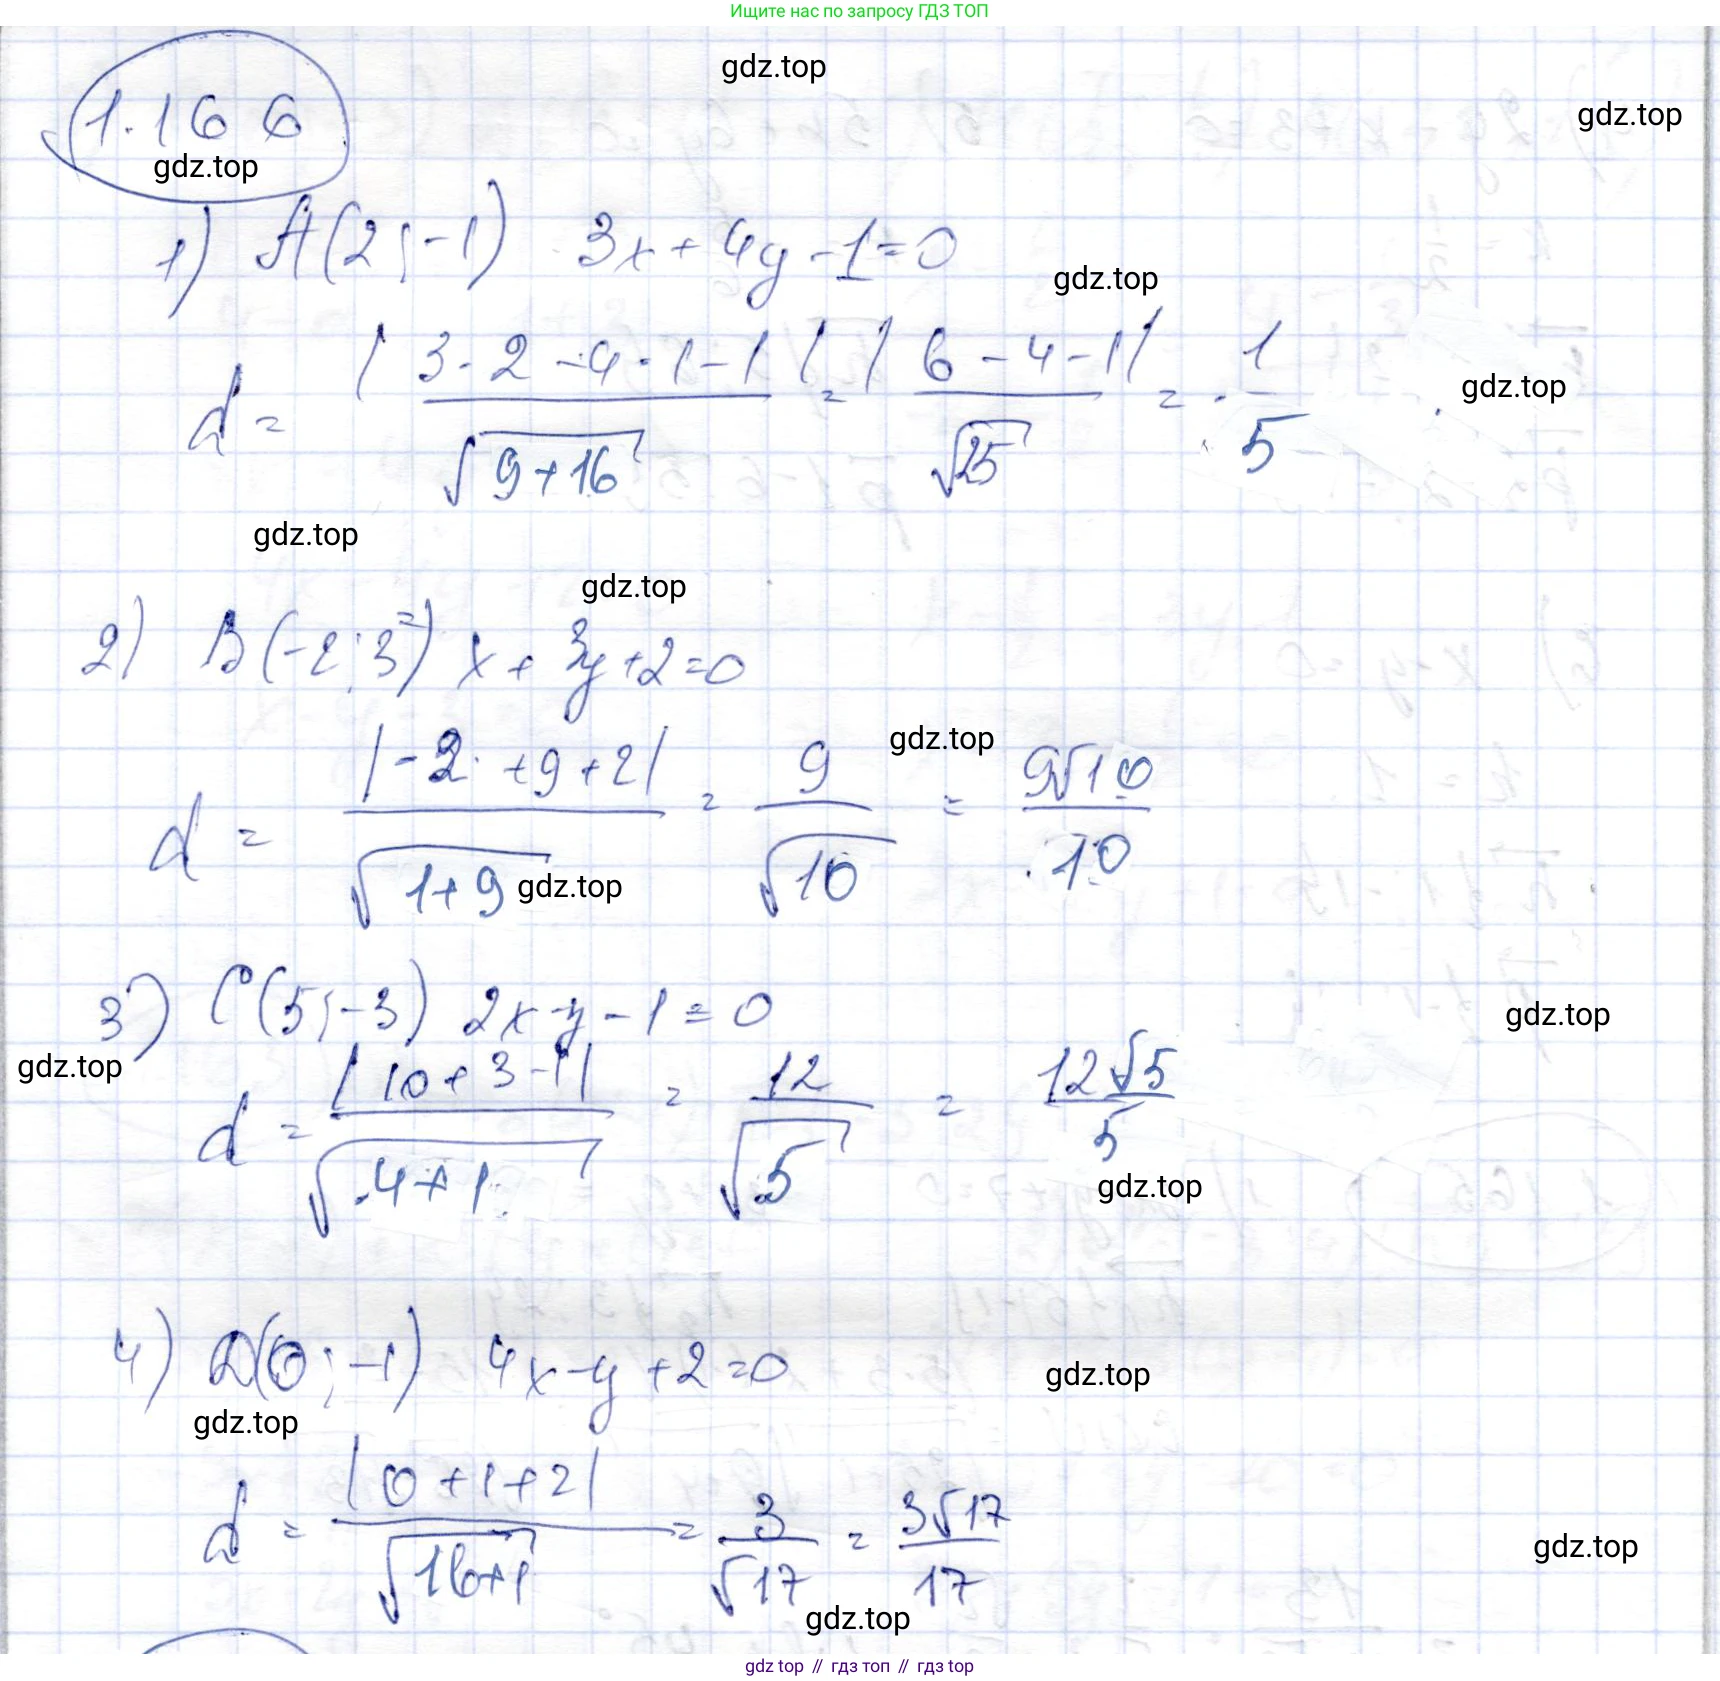 Ищите нас по запросу ГДЗ ТОП
gdz.top
gdz.top
1.166
gdz.top
1) A(2;-1) 3x+4y-1=0
gdz.top
d = |3·2-4·1-1|/√(9+16) = |6-4-1|/√25 = 1/5
gdz.top
gdz.top
gdz.top
2) B(-2;3) x+3y+2=0
gdz.top
d = |-2+9+2|/√(1+9) = 9/√10 = 9√10/10
gdz.top
3) C(5;-3) 2x-y-1=0
gdz.top
gdz.top
d = |10+3-1|/√(4+1) = 12/√5 = 12√5/5
gdz.top
4) D(0;-1) 4x-y+2=0
gdz.top
gdz.top
d = |0+1+2|/√(16+1) = 3/√17 = 3√17/17
gdz.top
gdz.top
gdz top // гдз топ // гдз top